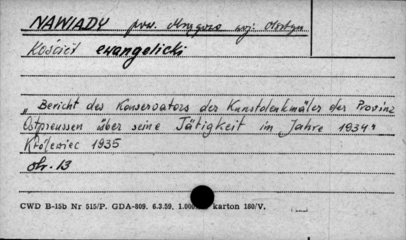 NAWIADY pow. Mrągowo woj. Olsztyn
Kościół ewangelicki
„Bericht des Konservators der Kunstdenkmäler der Provinz
Ostpreussen über seine Tätigkeit im Jahre 1934"
Królewiec 1935
str. 13
CWD B-15b Nr 515/P. GDA-809. 6.3.59. 1.000 karton 180/V.